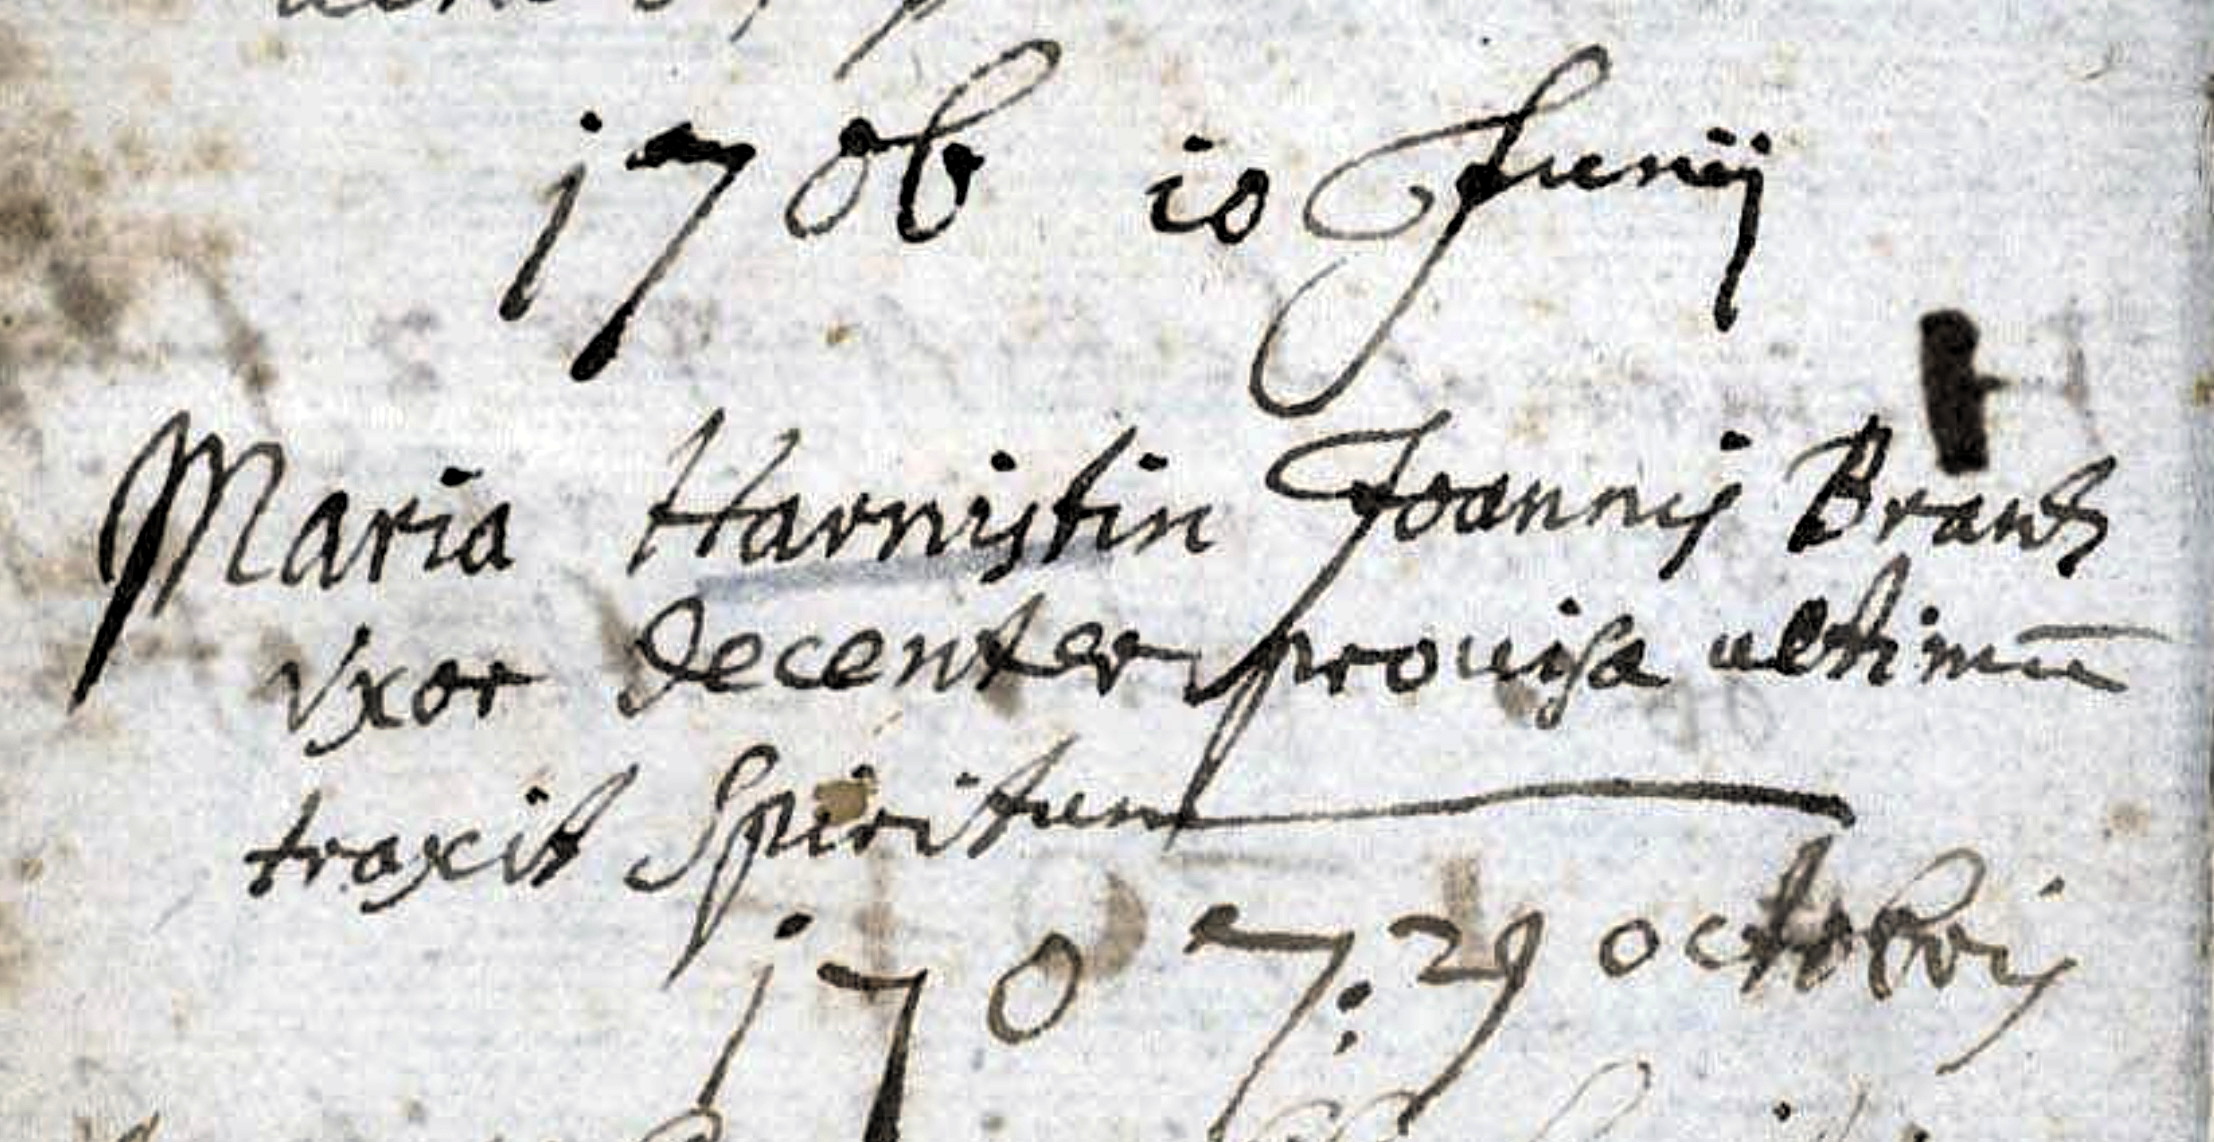 1706 10 Junij
Maria Harnistin Joannis Brantz
Vxor decenter prouisa ultimū
traxit Spiritum
1707: 29 octobris